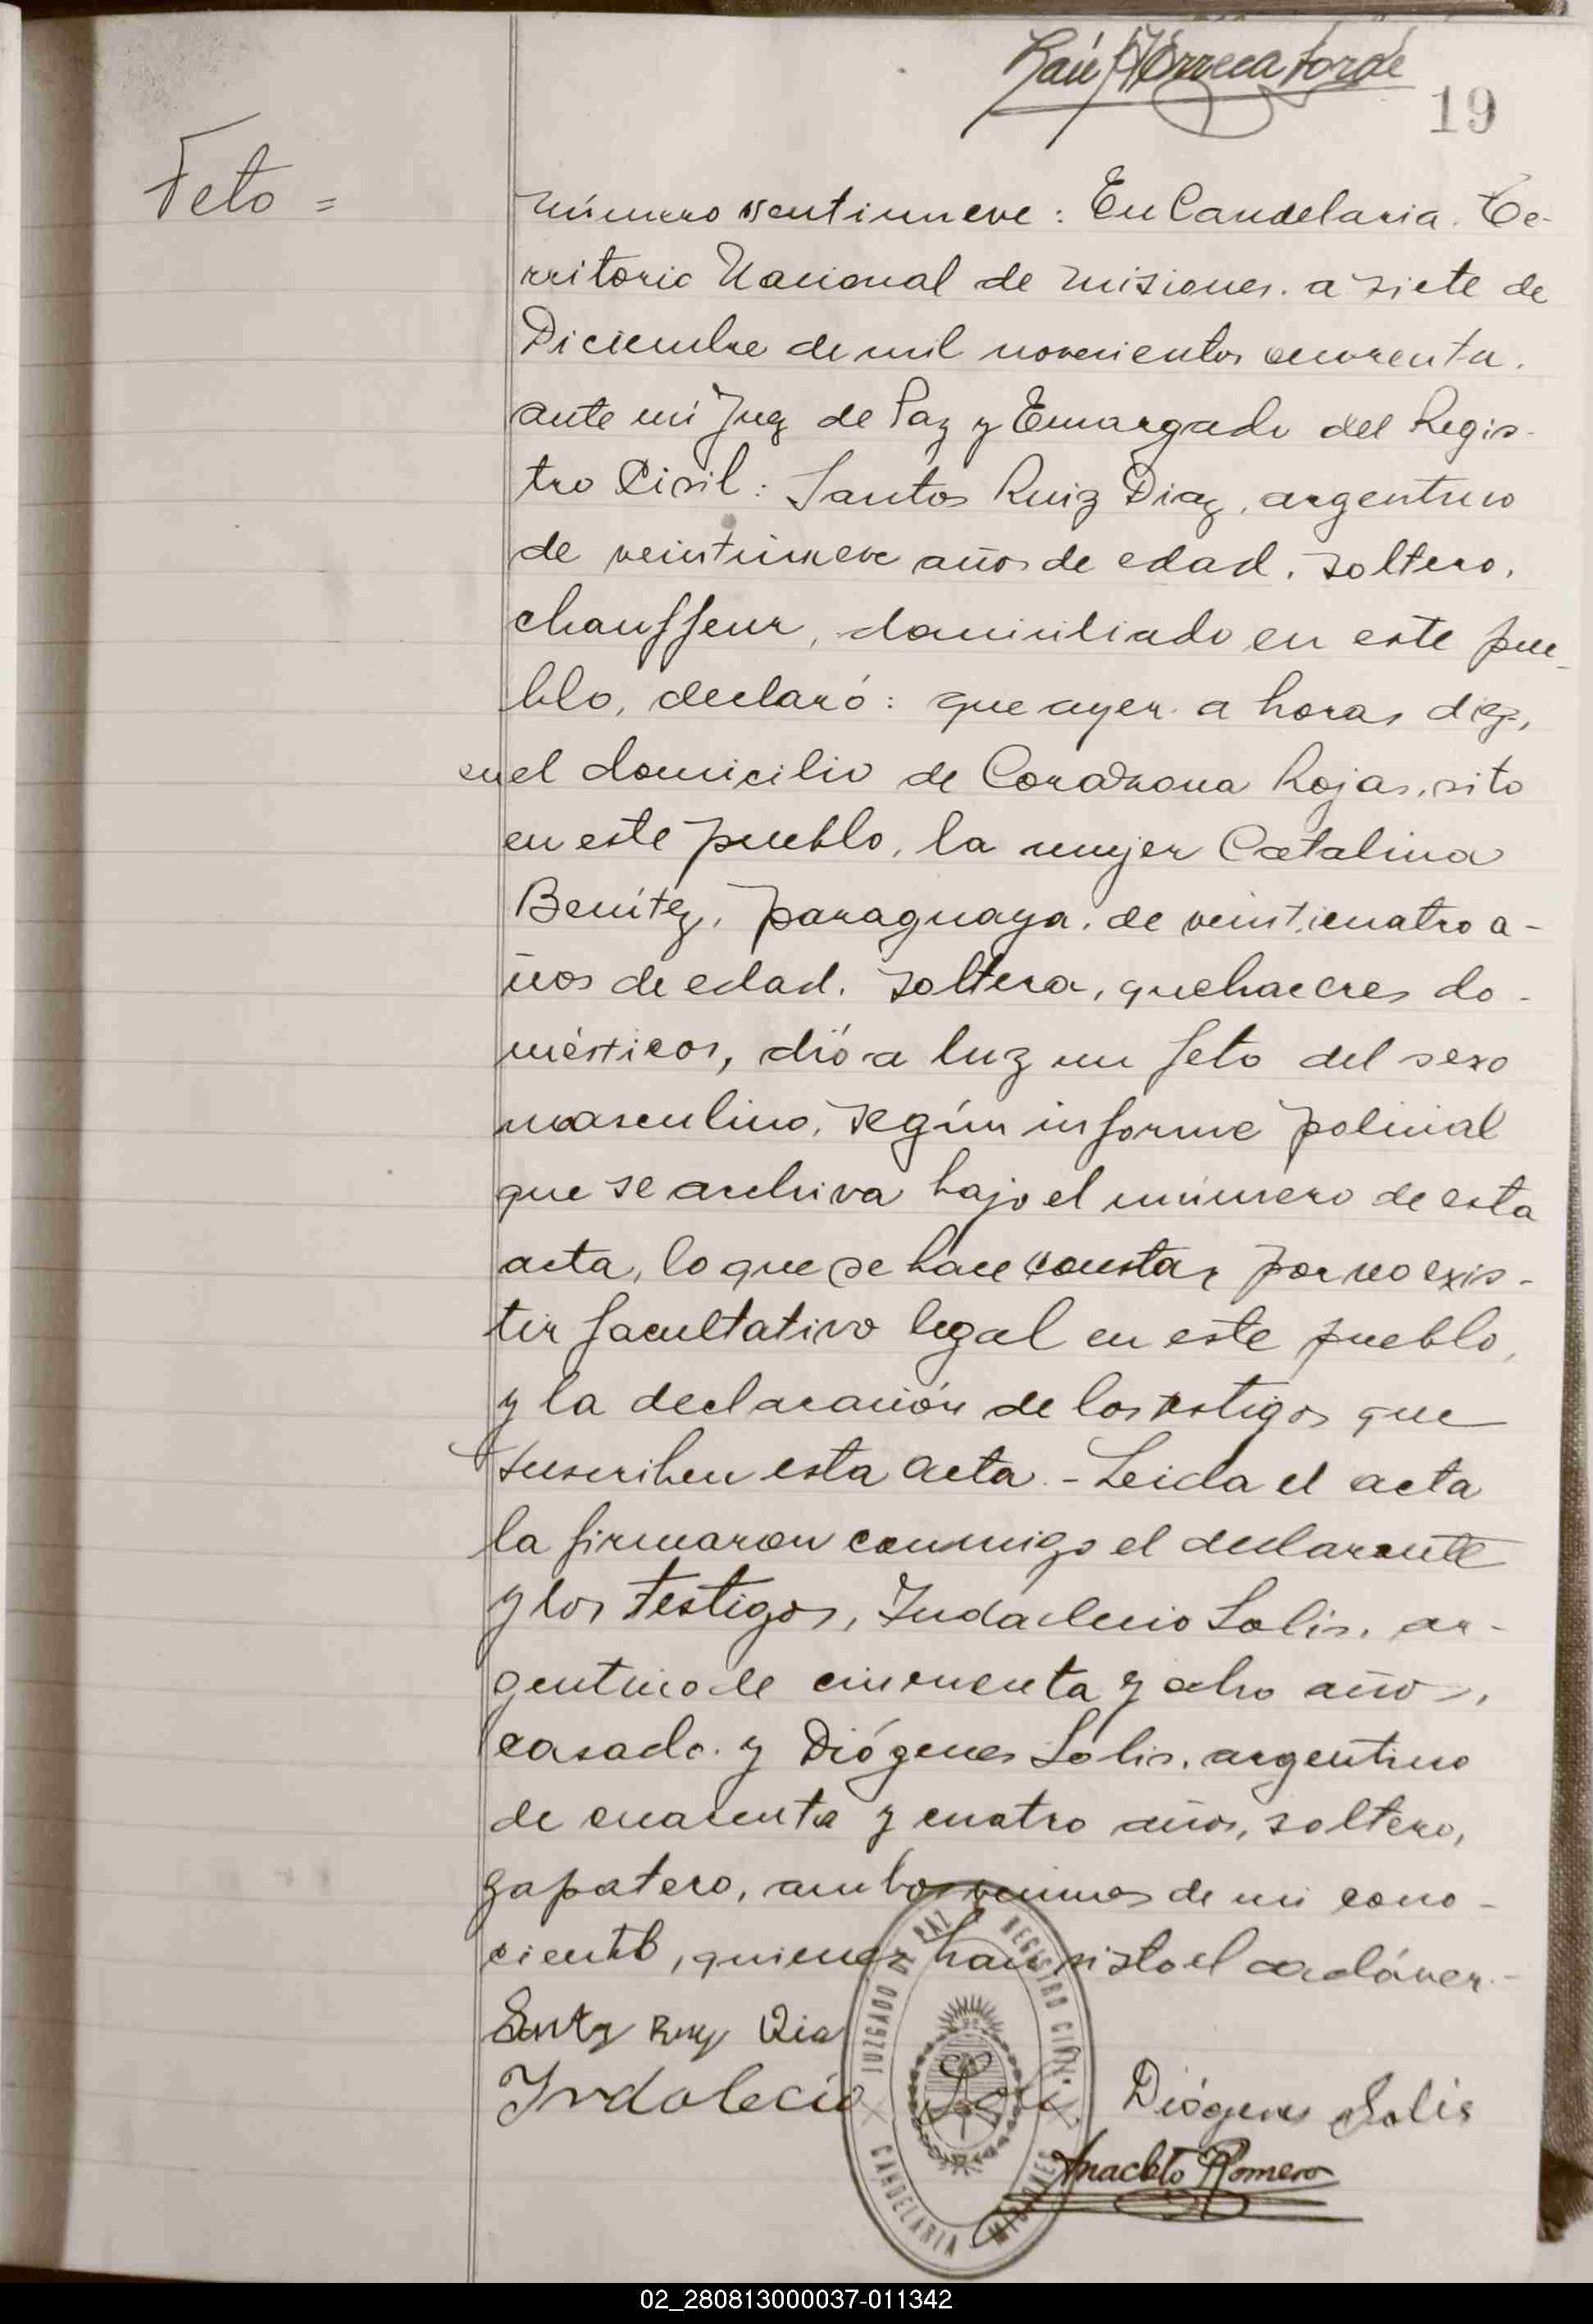 19
Feto =
número ventinueve: En Candelaria. Te-
rritorio Nacional de Misiones. a siete de
Diciembre de mil novecientos cuarenta.
ante mí Juez de Paz y Encargado del Regis-
tro Civil: Santos Ruiz Diaz, argentino
de veintinueve años de edad. soltero,
chauffeur, domiciliado en este pue-
blo, declaró: que ayer a horas diez,
en el domicilio de Rojas, sito
en este pueblo, la mujer Catalina
Benítez, paraguaya, de veinticuatro a-
ños de edad. soltera, quehaceres do-
mésticos, dió a luz un feto del sexo
masculino, según informe policial
que se archiva bajo el número de esta
acta, lo que se hace constar por no exis-
tir facultativo legal en este pueblo,
y la declaración de los testigos que
suscriben esta acta.- Leida el acta
la firmaron conmigo el declarante
y los testigos, Indalecio Solis, ar-
gentino de cincuenta y ocho años,
casado. y Diógenes Solis, argentino
de cuarenta y cuatro años, soltero,
zapatero, ambos vecinos de mi cono-
ciento, quienes han visto el cadáver.-
Indalecio Soli Diógenes Solis
Anacleto Romero
JUZGADO DE PAZ REGISTRO CIVIL
CANDELARIA - MISIONES
02_280813000037-011342